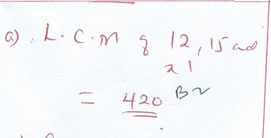 a) L.C.M of 12, 15 and
21
= 420 B2